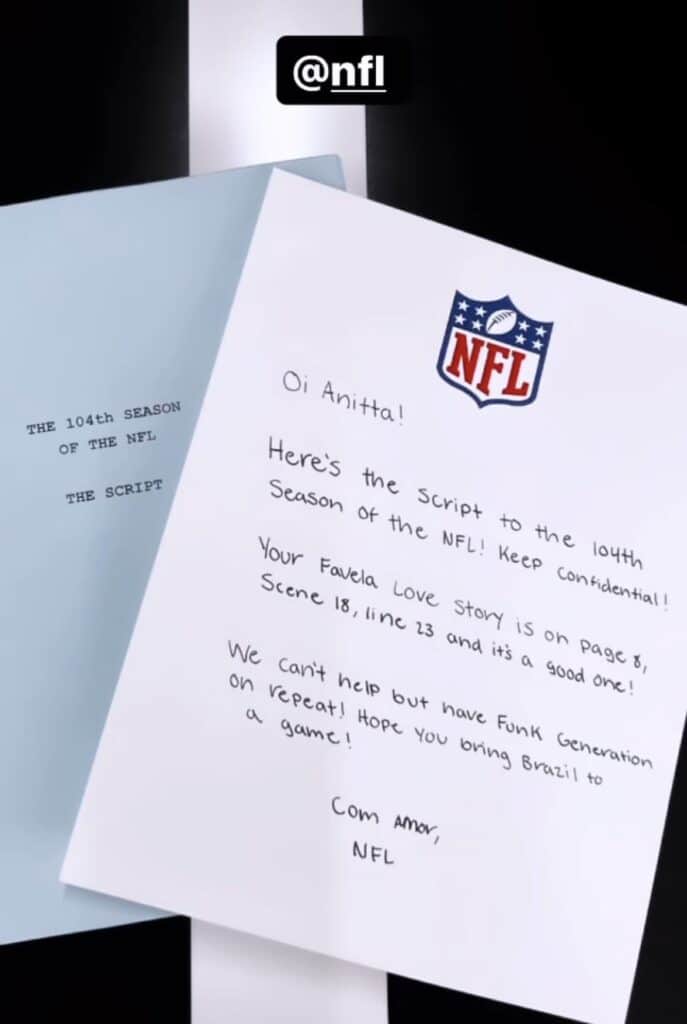 @nfl
THE 104th SEASON
OF THE NFL
THE SCRIPT
NFL
Oi Anitta!
Here's the script to the 104th
Season of the NFL! Keep Confidential!
Your Favela Love Story is on page 8,
Scene 18, line 23 and it's a good one!
We can't help but have Funk Generation
on repeat! Hope you bring Brazil to
a game!
Com Amor,
NFL